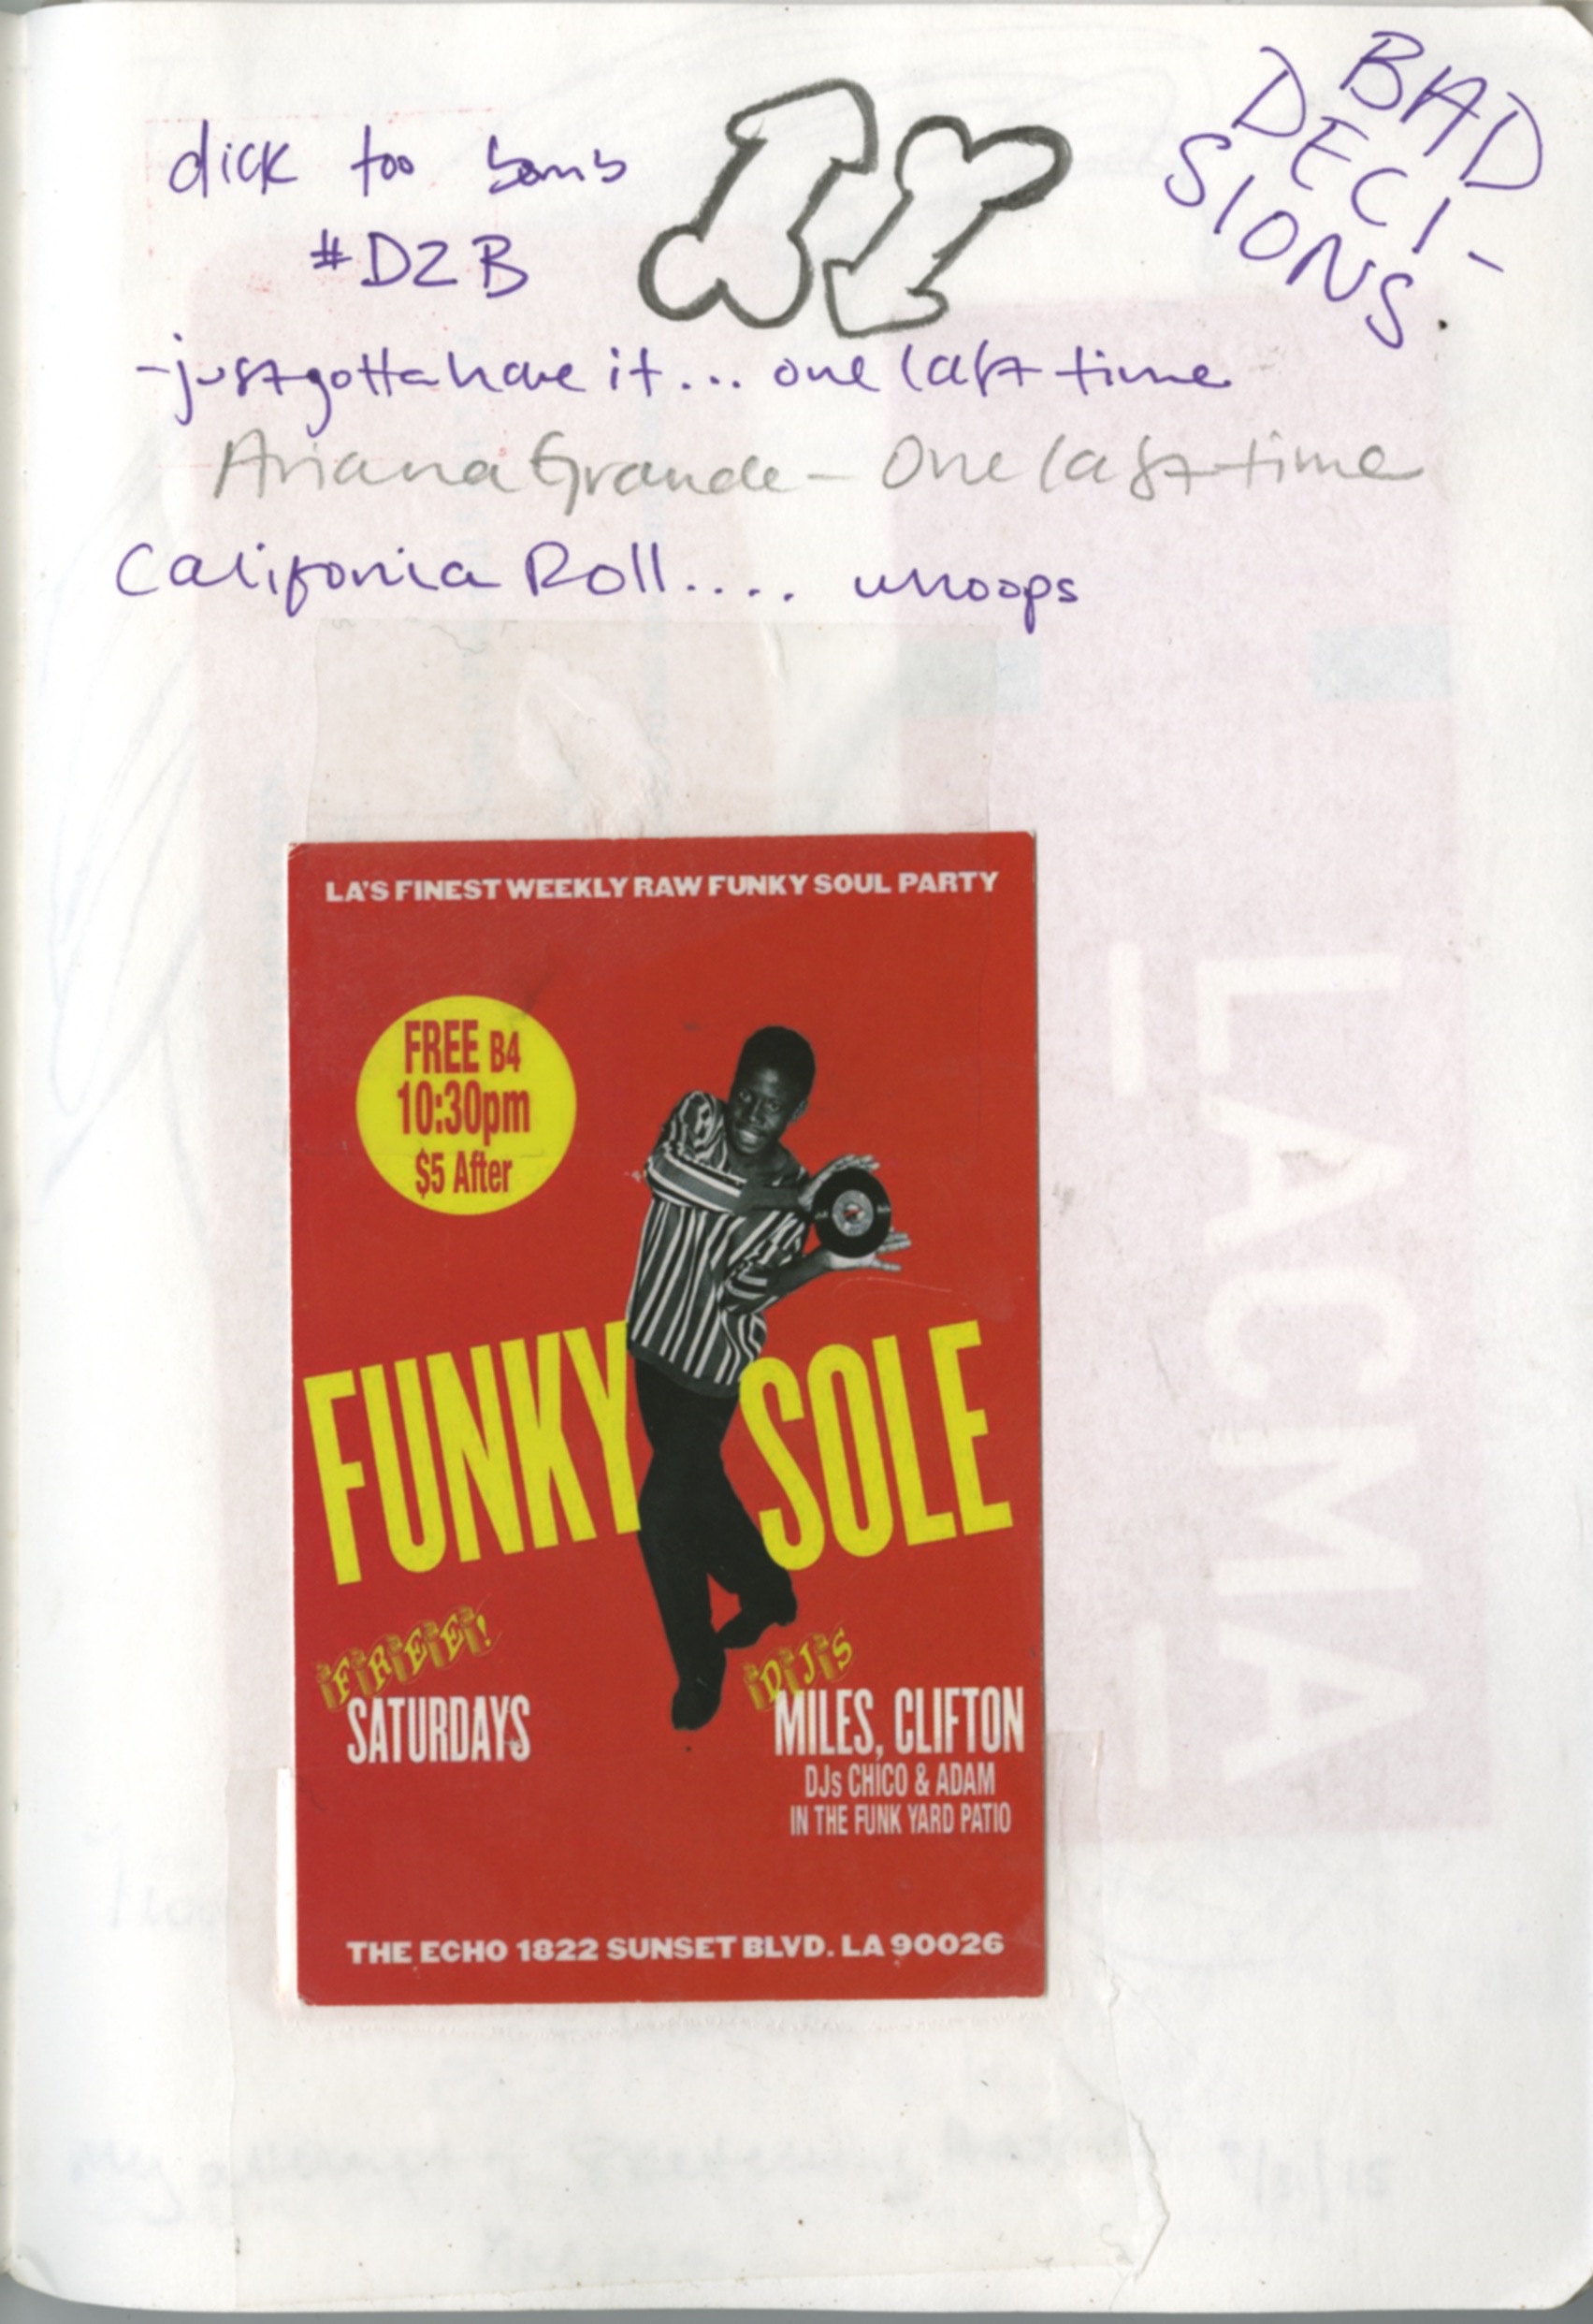 BAD
DECI-
SIONS.
dick too bomb
#D2B
-just gotta have it... one last time
Ariana Grande - One last time
Califonia Roll.... whoops
LA'S FINEST WEEKLY RAW FUNKY SOUL PARTY
FREE B4
10:30pm
$5 After
FUNKY SOLE
FREE!
SATURDAYS
DJS
MILES, CLIFTON
DJs CHICO & ADAM
IN THE FUNK YARD PATIO
THE ECHO 1822 SUNSET BLVD. LA 90026
LACMA